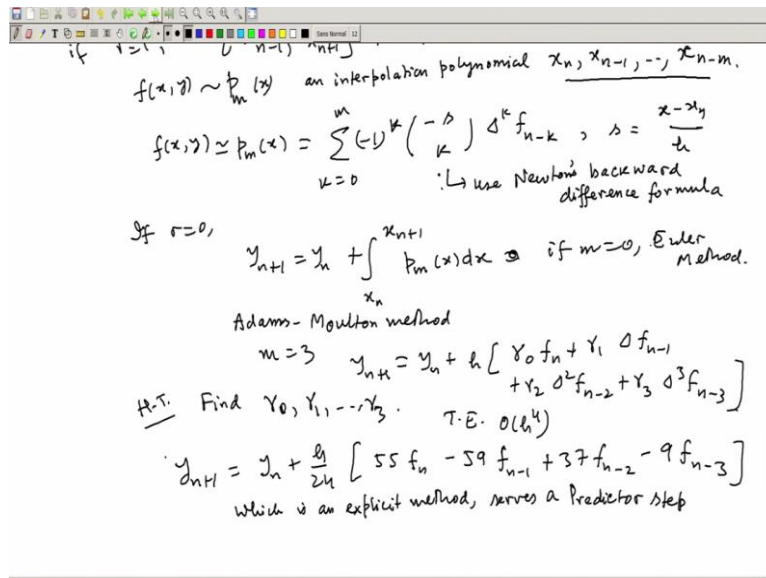 Sans Normal 12
if r=1, n-1, x_{n+1}
f(x,y) ~ p_m(x) an interpolation polynomial x_n, x_{n-1}, --, x_{n-m}.
f(x,y) ≃ p_m(x) = \sum_{k=0}^{m} (-1)^k \binom{-s}{k} Δ^k f_{n-k} , s = \frac{x-x_n}{h}
:↳ use Newton's backward
difference formula
If r=0,
y_{n+1} = y_n + \int_{x_n}^{x_{n+1}} p_m(x)dx if m=0, Euler
Method.
Adams-Moulton method
m=3 y_{n+1} = y_n + h [ γ_0 f_n + γ_1 Δ f_{n-1}
+ γ_2 Δ^2 f_{n-2} + γ_3 Δ^3 f_{n-3} ]
H.T. Find γ_0, γ_1, --, γ_3. T.E. O(h^4)
y_{n+1} = y_n + \frac{h}{24} [ 55 f_n - 59 f_{n-1} + 37 f_{n-2} - 9 f_{n-3} ]
which is an explicit method, serves a Predictor step